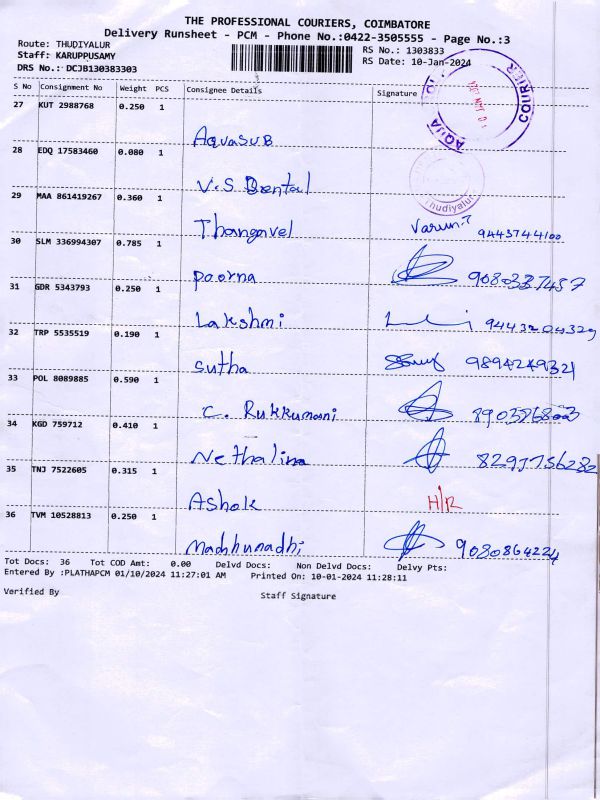 THE PROFESSIONAL COURIERS, COIMBATORE
Delivery Runsheet - PCM - Phone No.:0422-3505555 - Page No.:3
Route: THUDIYALUR
RS No.: 1303833
Staff: KARUPPUSAMY
RS Date: 10-Jan-2024
DRS No.: DCJB130383303
S No Consignment No Weight PCS Consignee Details Signature
27 KUT 2988768 0.250 1
AquaSUB
AQUA COURIER
28 EDQ 17583460 0.080 1
V.S Dental
Thudiyalur
29 MAA 861419267 0.360 1
Thangavel Varun.T 9443744100
30 SLM 336994307 0.785 1
Poorna 9080337457
31 GDR 5343793 0.250 1
Lakshmi
32 TRP 5535519 0.190 1
Sutha 9894249321
33 POL 8089885 0.590 1
C. Rukkumani
34 KGD 759712 0.410 1
Nethalina
35 TNJ 7522605 0.315 1
Ashok H/R
36 TVM 10528813 0.250 1
Madhunadhi 9080864224
Tot Docs: 36 Tot COD Amt: 0.00 Delvd Docs: Non Delvd Docs: Delvy Pts:
Entered By :PLATHAPCM 01/10/2024 11:27:01 AM Printed On: 10-01-2024 11:28:11
Verified By Staff Signature